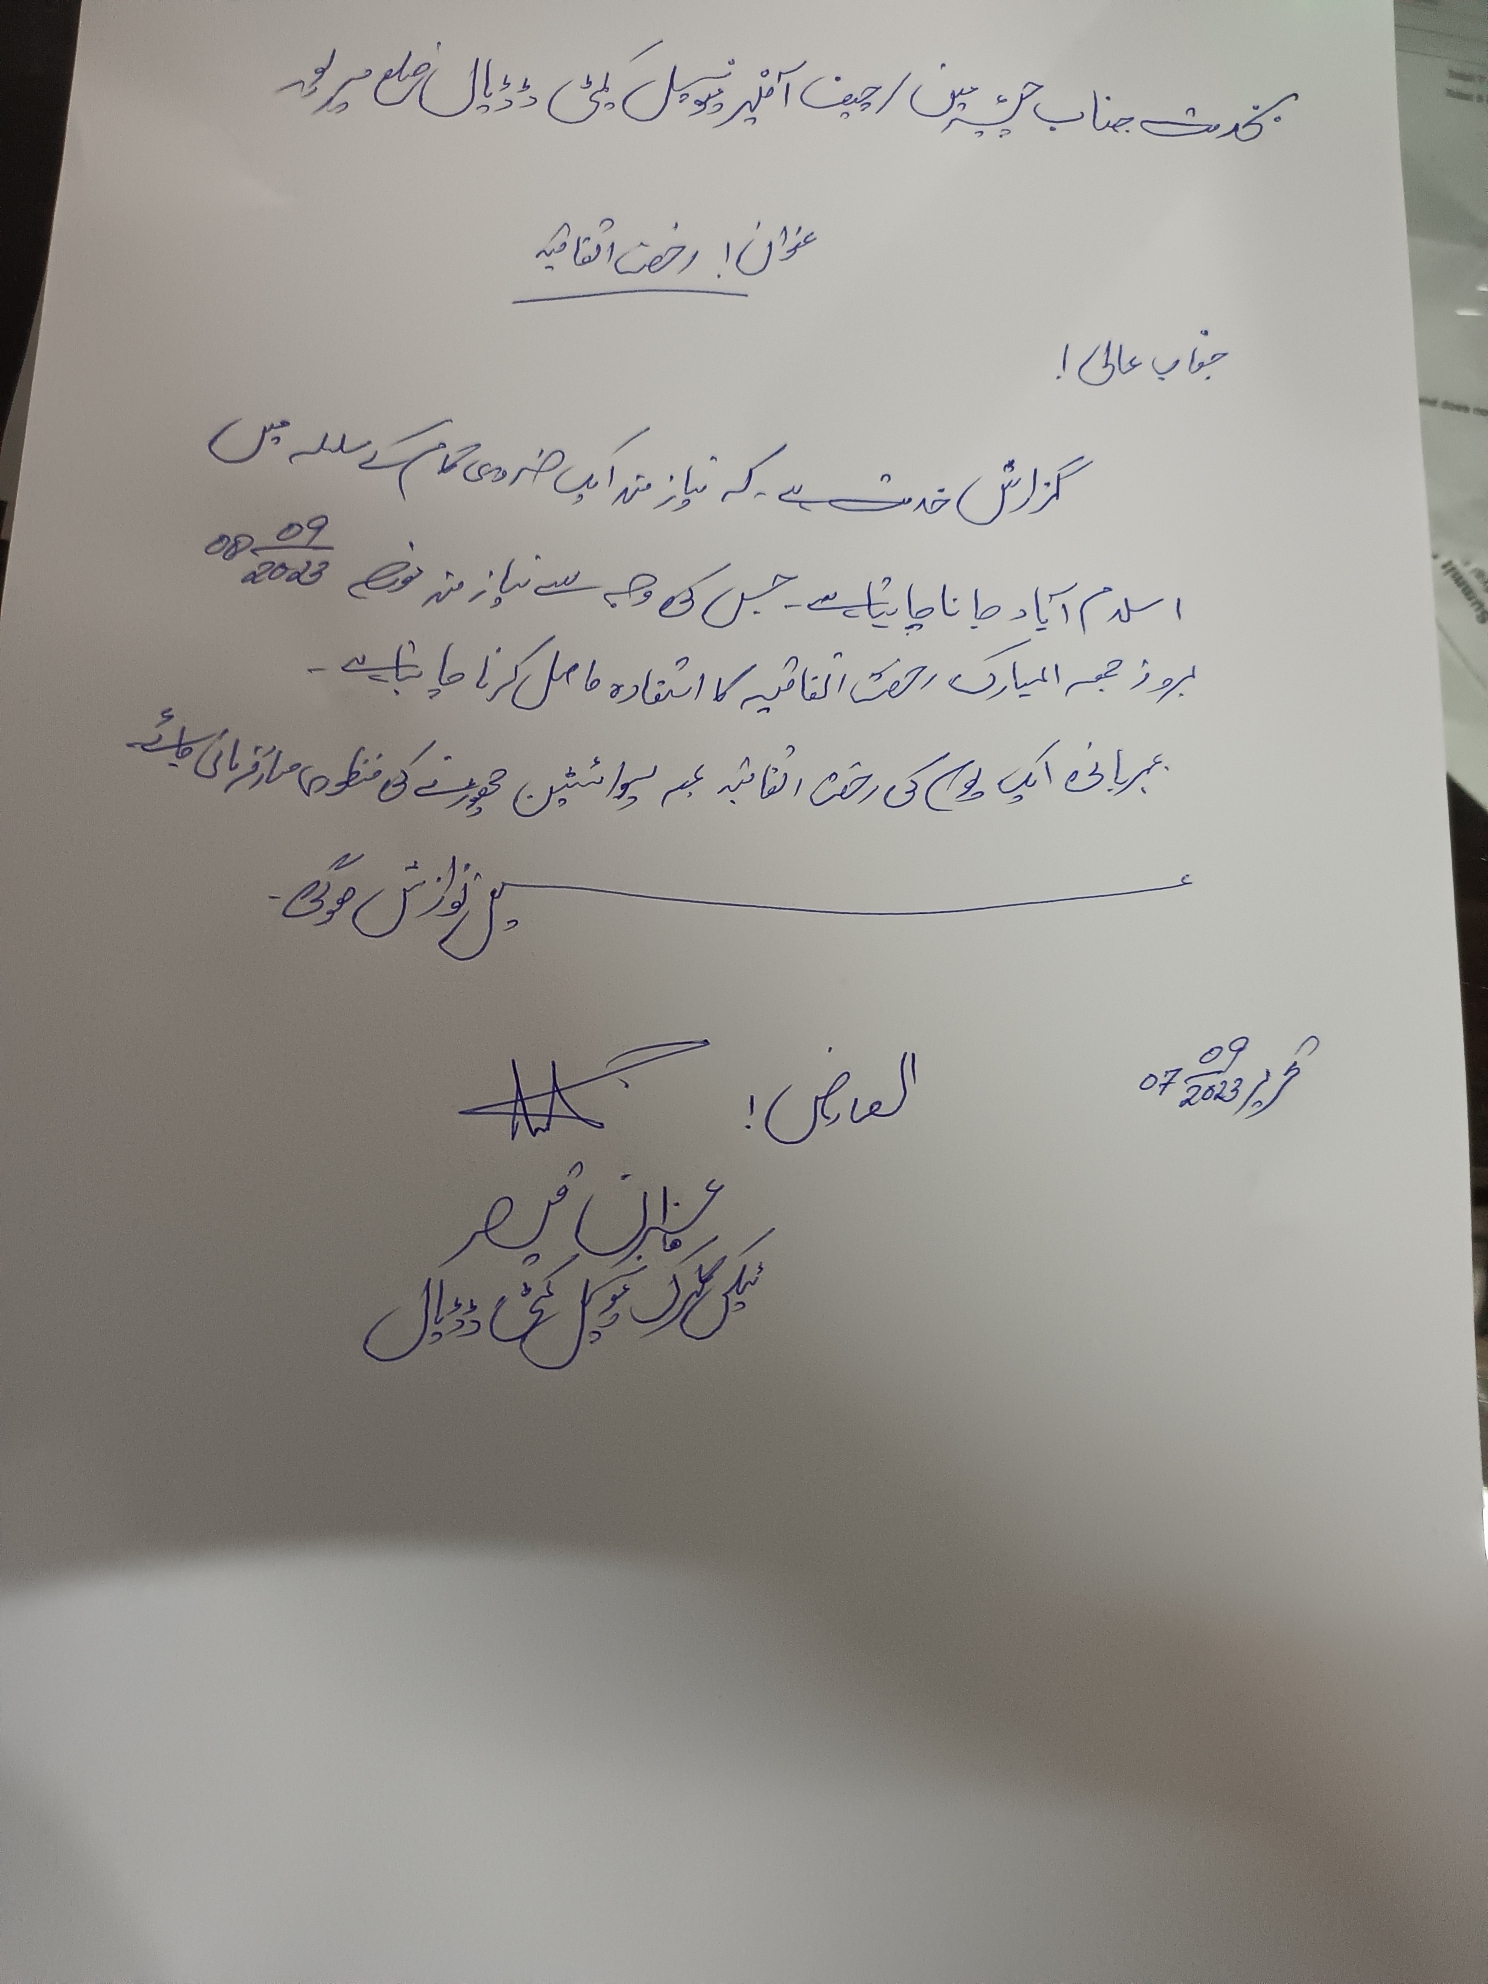 بخدمت جناب چیئرمین / چیف آفیسر میونسپل کمیٹی ڈڈیال ضلع میرپور
عنوان! رخصت اتفاقیہ
جناب عالی!
گزارش خدمت ہے۔ کہ نیاز مند ایک ضروری کام کے سلسلہ میں
اسلام آباد جانا چاہتا ہے۔ جس کی وجہ سے نیاز مند مورخہ 08 09/2023
بروز جمعہ المبارک رخصت اتفاقیہ کا استفادہ حاصل کرنا چاہتا ہے۔
مہربانی ایک یوم کی رخصت اتفاقیہ بمعہ اسٹیشن چھوڑنے کی منظوری صادر فرمائی جائے
عین نوازش ہوگی۔
تحریر 07 09/2023
العارض!
قیصر
ٹیکس کلرک میونسپل کمیٹی ڈڈیال